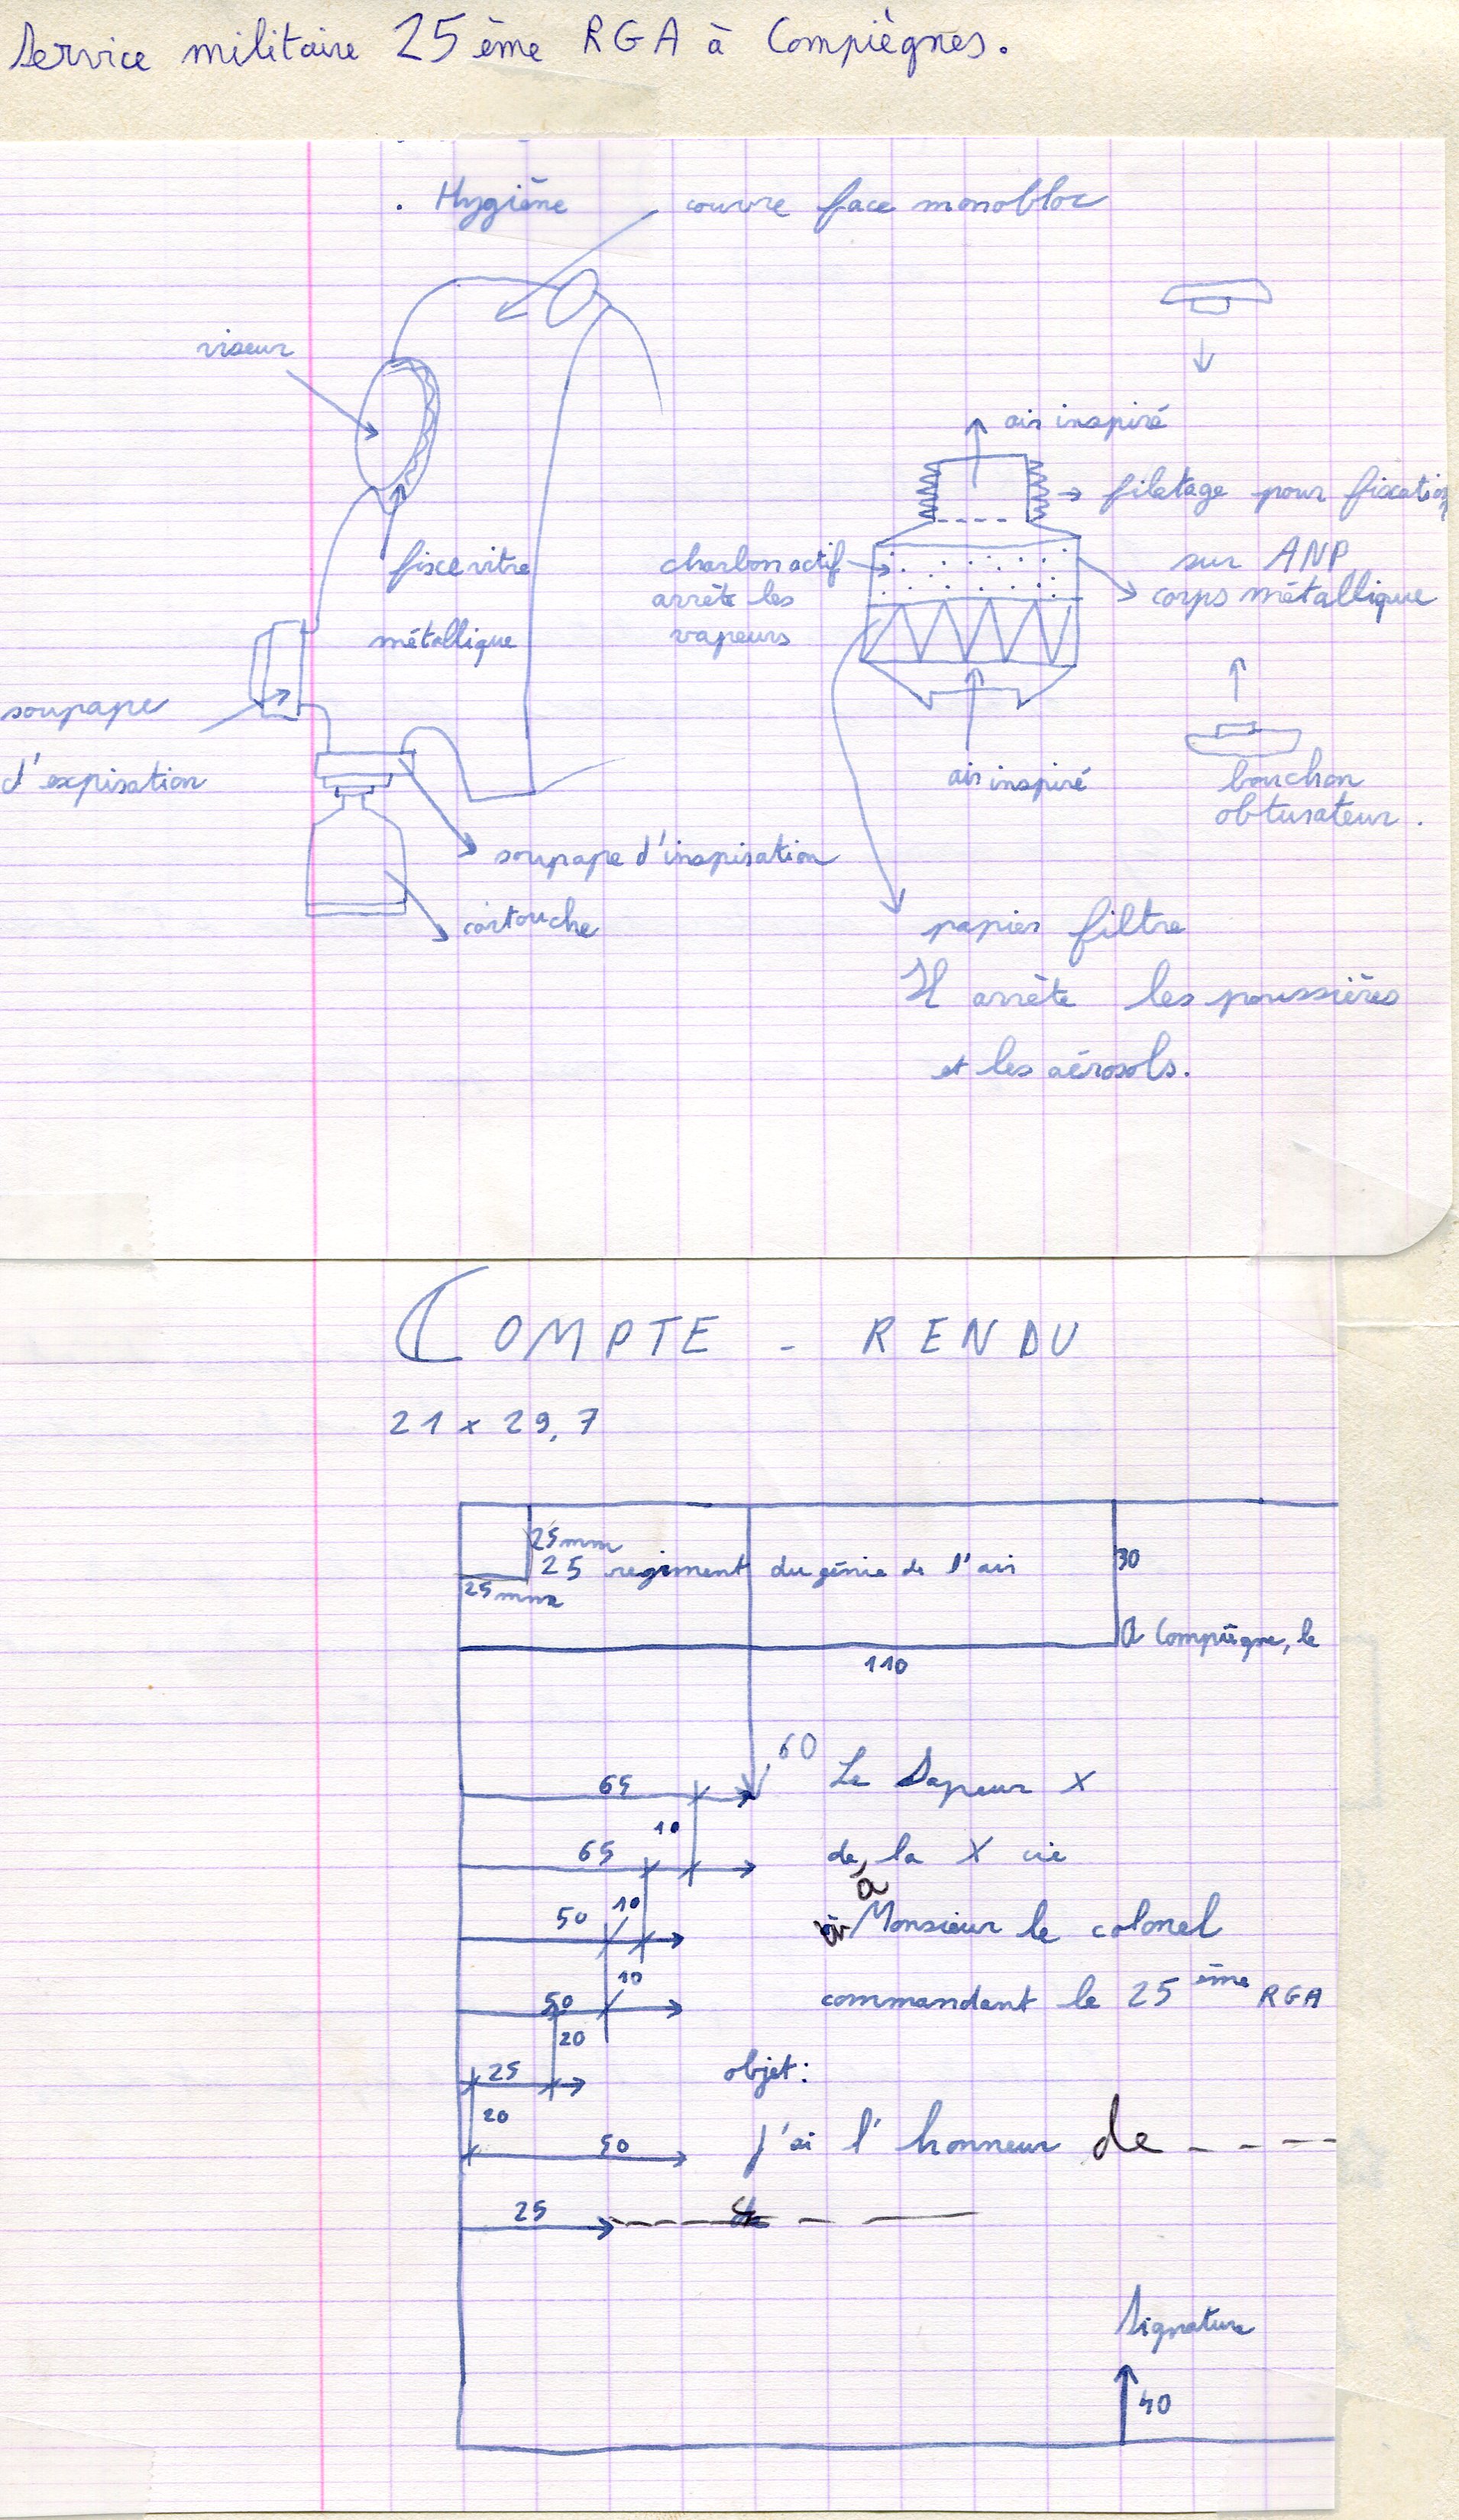 Service militaire 25ème RGA à Compiègnes.
. Hygiène
couvre face monobloc
viseur
fixe vitre
métallique
soupape
d'expiration
soupape d'inspiration
cartouche
air inspiré
filetage pour fixation
sur ANP
corps métallique
charbon actif
arrête les
vapeurs
air inspiré
bouchon
obturateur.
papier filtre
Il arrête les poussières
et les aérosols.
COMPTE - RENDU
21 x 29,7
25mm
25 regiment du génie de l'air
25mm
30
A Compiègne, le
110
60
65
Le Sapeur X
10
65
de la X cie
50
10
à Monsieur le colonel
10
50
commandant le 25ème RGA
20
25
objet:
20
50
J'ai l'honneur de ----
25
Signature
40